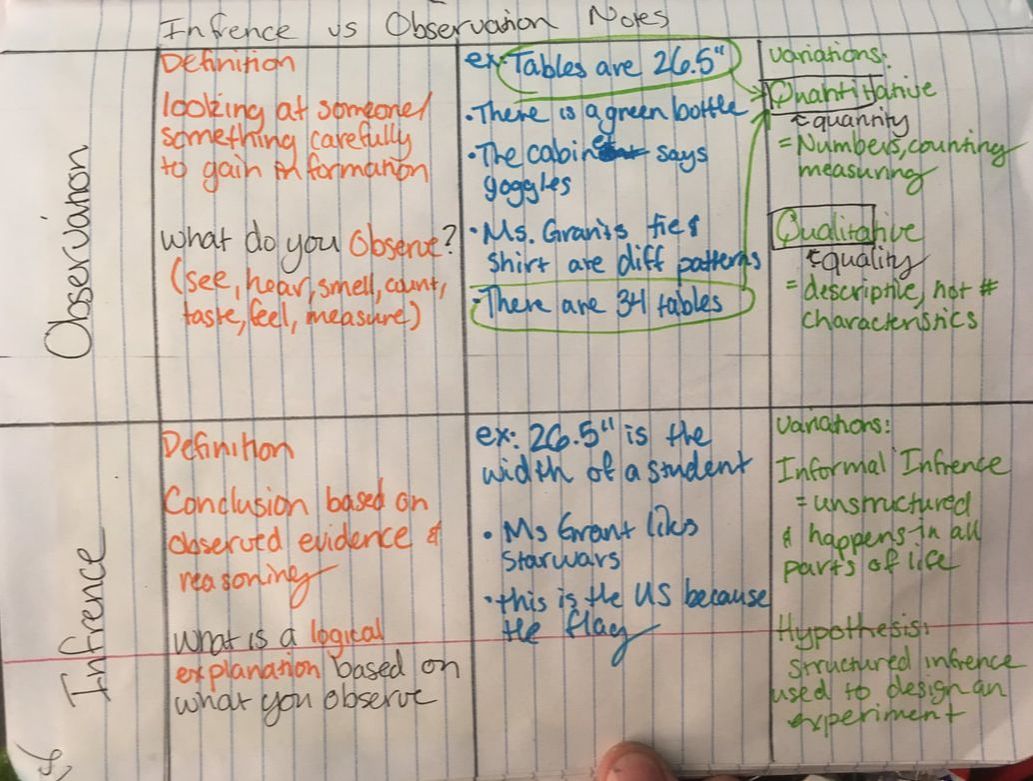 Infrence vs Observation Notes
Observation
Definition
looking at someone/
something carefully
to gain information
What do you Observe?
(see, hear, smell, count,
taste, feel, measure)
ex: Tables are 26.5"
• There is a green bottle
• The cabinet says
goggles
• Ms. Grants tie &
shirt are diff patterns
• There are 34 tables
variations:
Quantitative
quantity
= Numbers, counting
measuring
Qualitative
quality
= descriptive, not #
characteristics
Infrence
Definition
Conclusion based on
observed evidence &
reasoning
What is a logical
explanation based on
what you observe
ex: 26.5" is the
width of a student
• Ms Grant likes
Starwars
• this is the US because
the flag
variations:
Informal Infrence
= unstructured
& happens in all
parts of life
Hypothesis:
structured infrence
used to design an
experiment